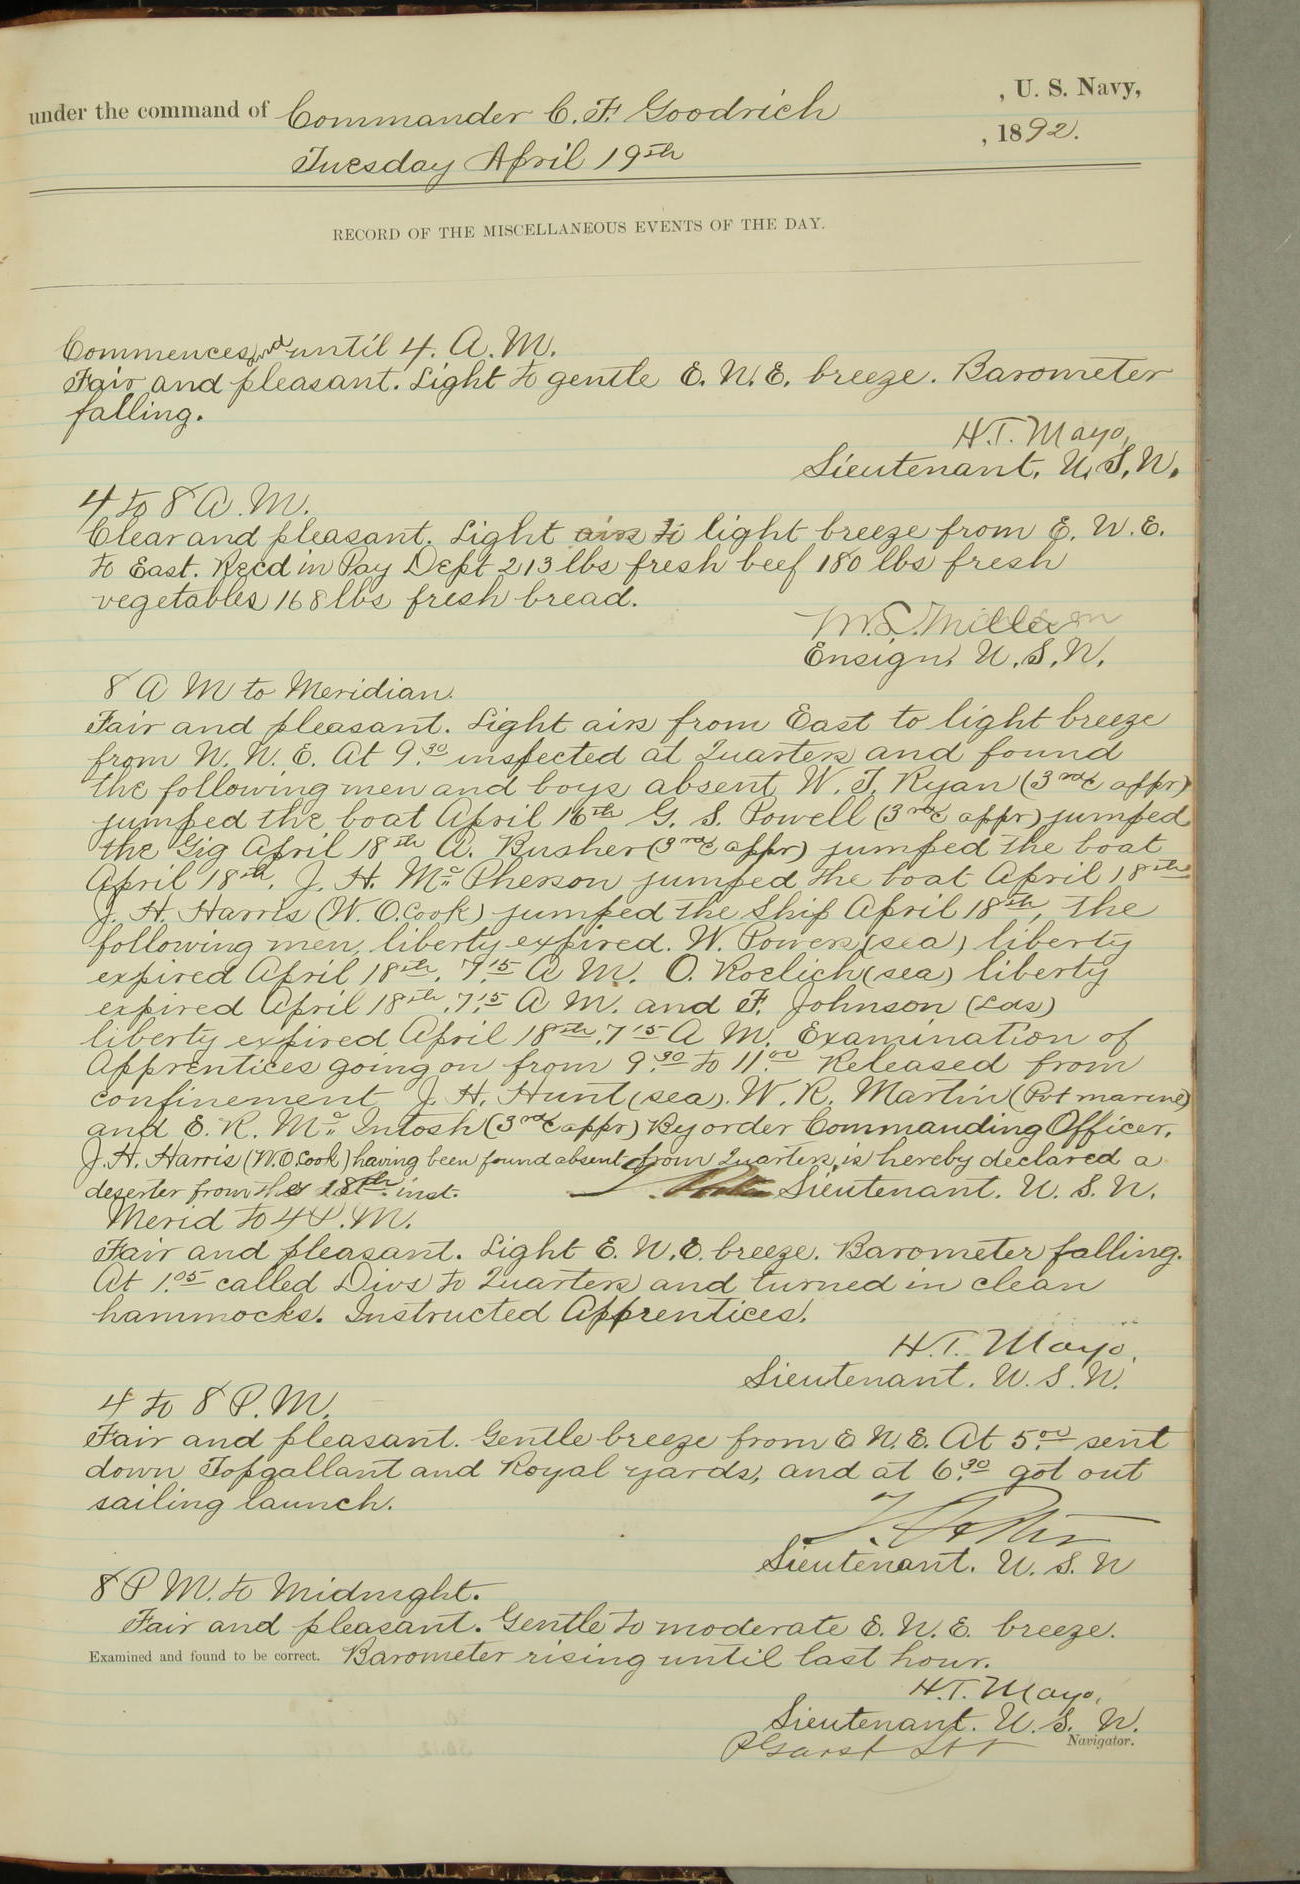 under the command of Commander C. F. Goodrich , U. S. Navy,
Tuesday April 19th , 1892.
RECORD OF THE MISCELLANEOUS EVENTS OF THE DAY.
Commences and until 4. A. M.
Fair and pleasant. Light to gentle E. N. E. breeze. Barometer
falling.
H. T. Mayo,
Lieutenant, U. S. N.
4 to 8 A. M.
Clear and pleasant. Light airs to light breeze from E. N. E.
to East. Recd in Pay Dept 213 lbs fresh beef 180 lbs fresh
vegetables 168 lbs fresh bread.
Ensign, U. S. N.
8 A M to Meridian.
Fair and pleasant. Light airs from East to light breeze
from N. N. E. At 9.30 inspected at Quarters and found
the following men and boys absent W. T. Ryan (3rd c appr)
jumped the boat April 16th G. S. Powell (3rd c appr) jumped
the Gig April 18th A. Busher (3rd c appr) jumped the boat
April 18th. J. H. McPherson jumped the boat April 18th
J. H. Harris (W. O. Cook) jumped the ship April 18th, the
following men, liberty expired. W. Powers (sea) liberty
expired April 18th, 7.15 A M. O. Roelich (sea) liberty
expired April 18th, 7.15 A M. and F. Johnson (Lds)
liberty expired April 18th, 7.15 A M. Examination of
Apprentices going on from 9.30 to 11.00 Released from
confinement J. H. Hunt (sea). W. R. Martin (Pvt marine)
and E. R. McIntosh (3rd c appr) By order Commanding Officer.
J. H. Harris (W. O. Cook) having been found absent from Quarters, is hereby declared a
deserter from the 18th inst. Lieutenant. U. S. N.
Merid to 4 P. M.
Fair and pleasant. Light E. N. E. breeze. Barometer falling.
At 1.05 called Divs to Quarters and turned in clean
hammocks. Instructed Apprentices.
H. T. Mayo,
Lieutenant. U. S. N.
4 to 8 P. M.
Fair and pleasant. Gentle breeze from E N. E. At 5.00 sent
down Topgallant and Royal yards, and at 6.30 got out
sailing launch.
Lieutenant. U. S. N
8 P M. to Midnight.
Fair and pleasant. Gentle to moderate E. N. E. breeze.
Examined and found to be correct. Barometer rising until last hour.
H. T. Mayo,
Lieutenant. U. S. N.
Navigator.